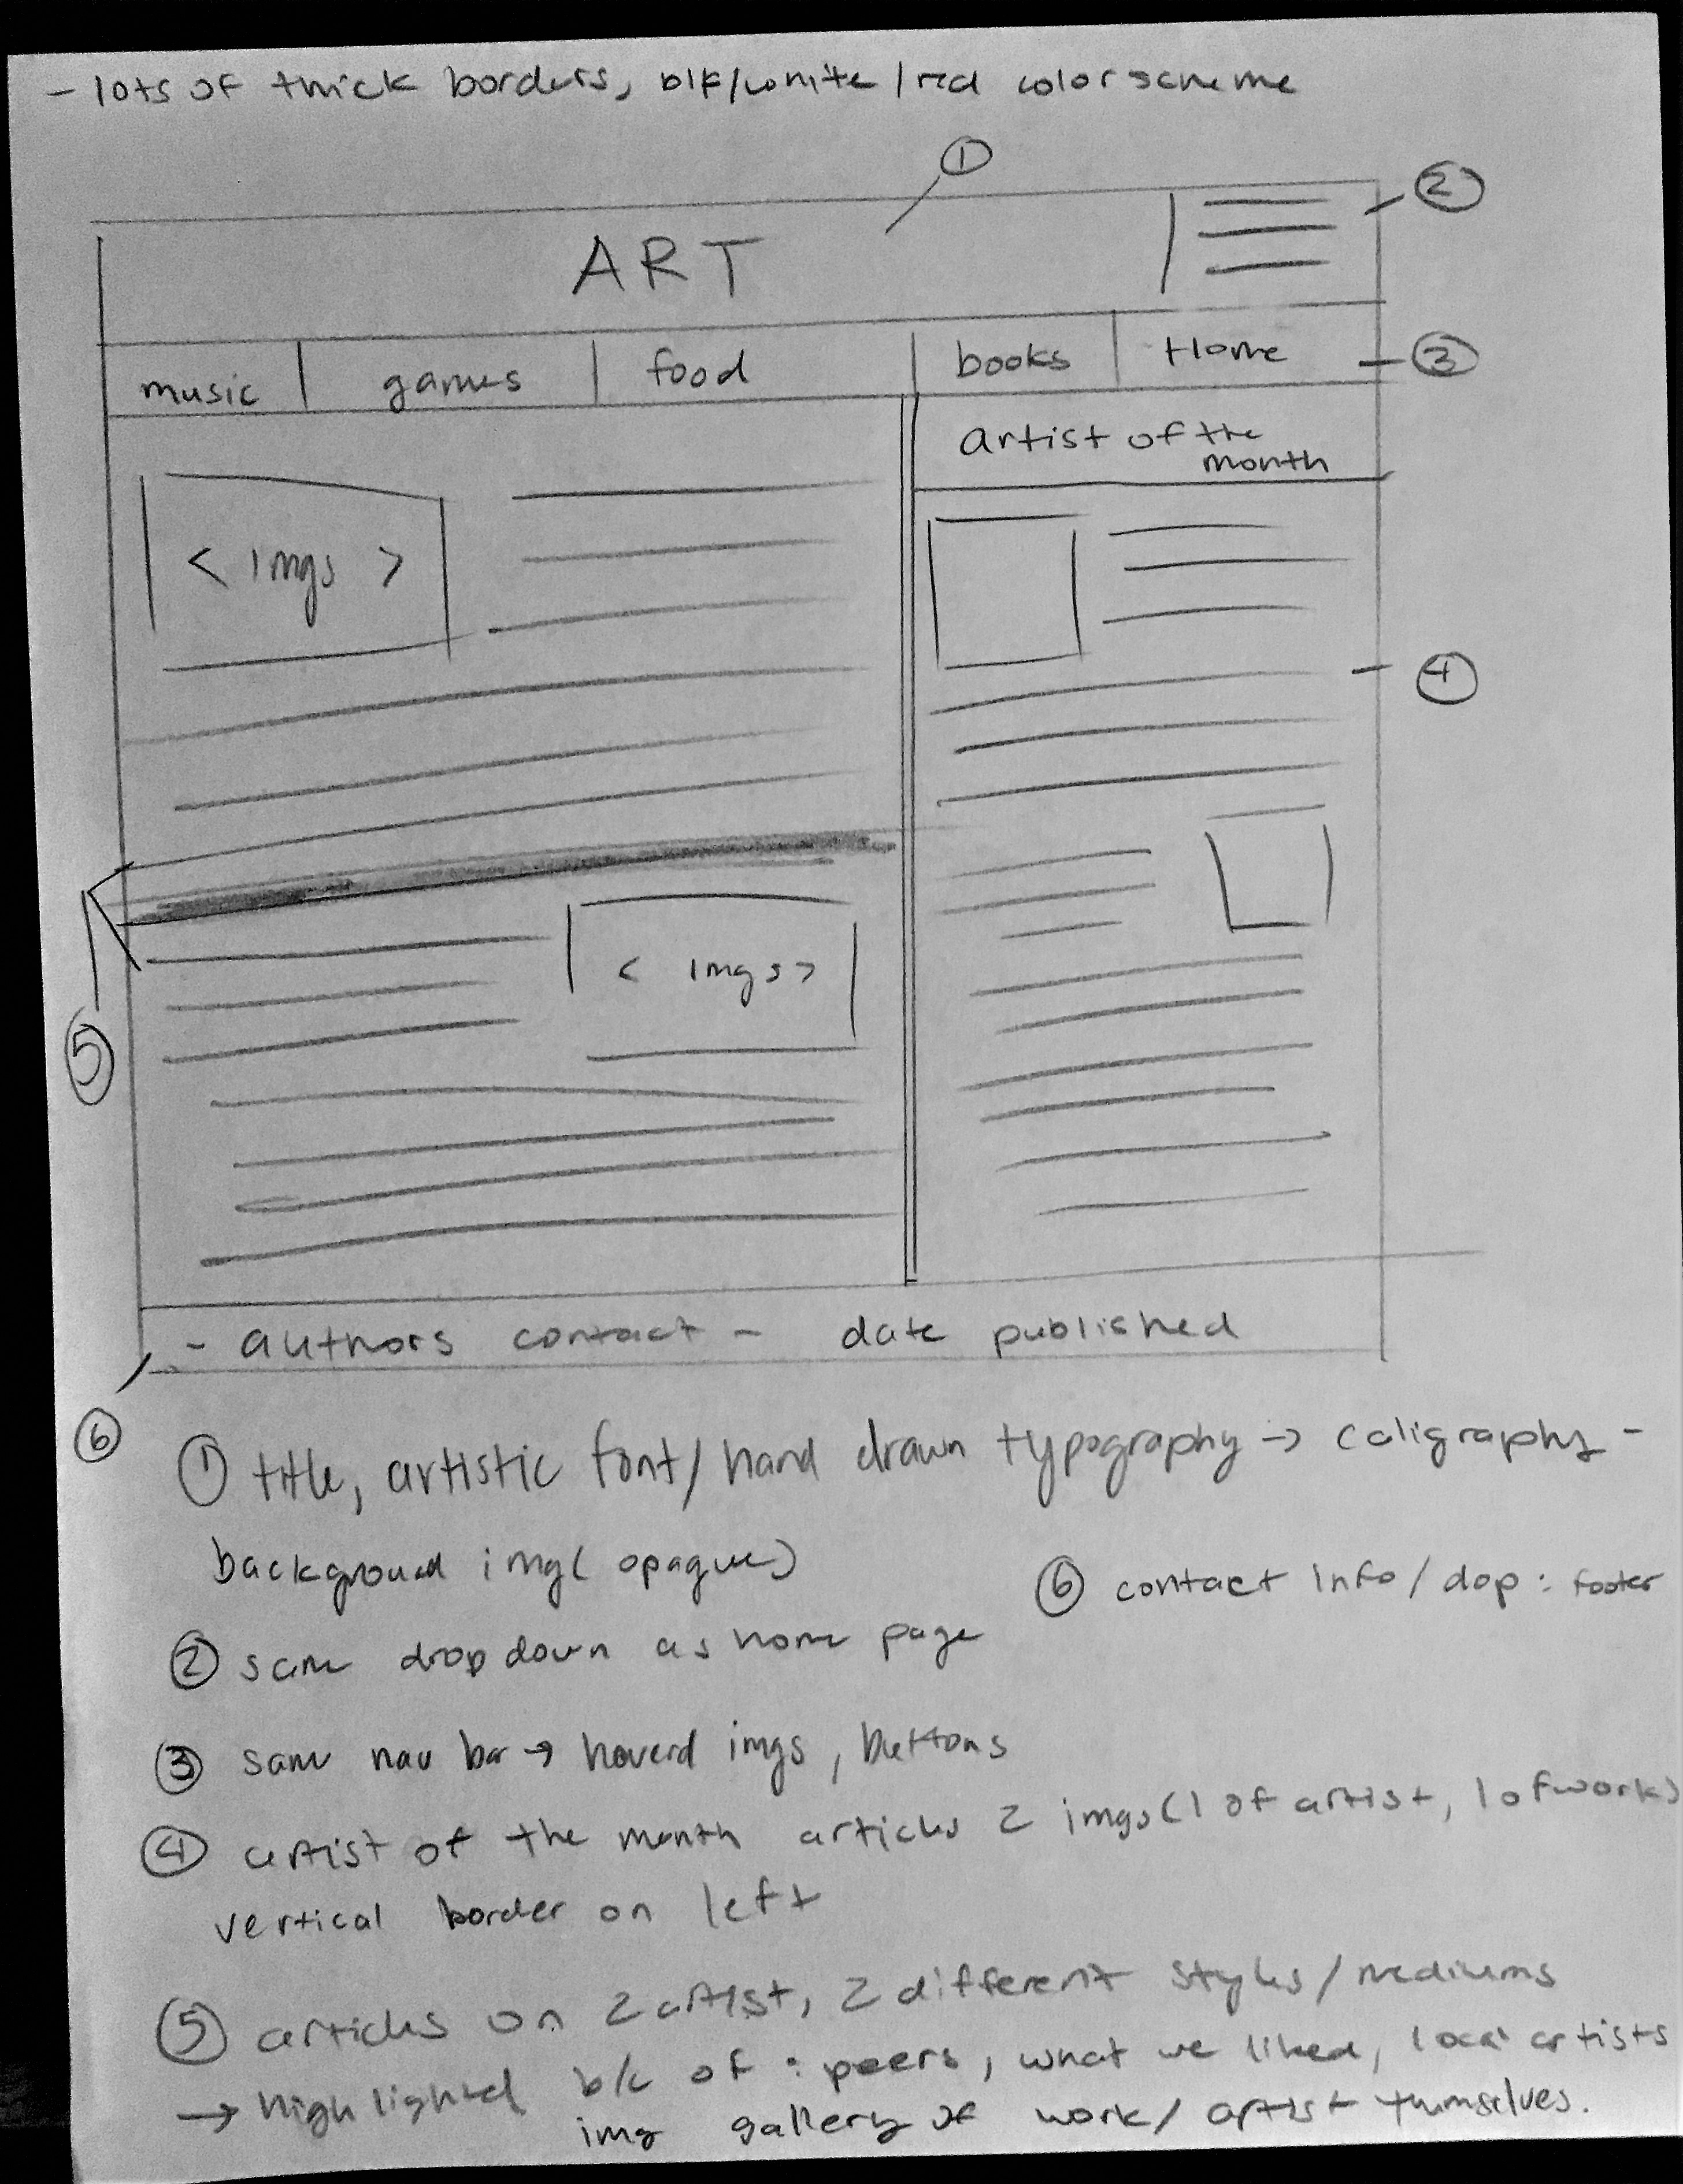 - lots of thick borders, blk/white/red color scheme
①
②
ART
music games food books Home
③
artist of the
month
< imgs >
④
< imgs >
⑤
- authors contact - date published
⑥
① title, artistic font/hand drawn typography → caligraphy -
background img (opaque)
⑥ contact info/dop: footer
② same drop down as home page
③ same nav bar → hoverd imgs, buttons
④ artist of the month articles 2 imgs (1 of artist, 1 of work)
vertical border on left
⑤ articles on 2 artist, 2 different styles/mediums
→ highlighted b/c of: peers, what we liked, local artists
img gallery of work/artist themselves.